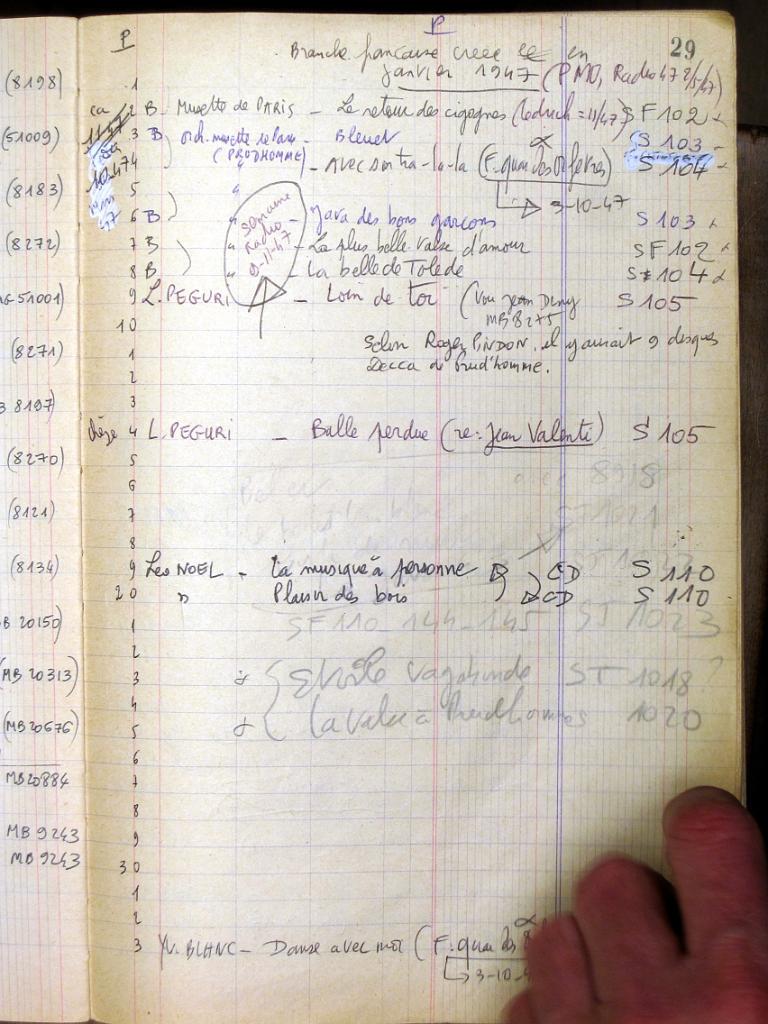 P
P
29
Branche française creee en
janvier 1947 (PMO, Radio 47 2/5/47)
(8198)
1
ca
2 B - Musette de PARIS - Le retour des cigognes (Ledrich = 11/47) SF 102
(51009)
11/47
3 B orch. musette le Paris - Bleuet S 103
(PRUDHOMME)
4 " - Avec son tra-la-la (F. quai des Orfevres) S 104
(8183)
5 " 3-10-47
6 B " - Java des bons garçons S 103
Semaine Radio 9-11-47
(8272)
7 B " - La plus belle valse d'amour SF 102
8 B " - La belle de Tolede S 104
51001)
9 L. PEGURI - Loin de toi (Voir Jean Deny S 105
MB 8275
10
Selon Roger PINDON, il y aurait 9 disques
(8271)
1
Decca de Prud'homme.
2
8197
3
4 L. PEGURI - Balle perdue (re: Jean Valenti) S 105
(8270)
5
6
8918
(8121)
7
ST 1021
8
(8134)
9 Leo NOEL - La musique à personne CD S 110
20 " Plaisir des bois CD S 110
B 20150)
1
SF 110 - 144 - 145 ST 1023
2
(MB 20313)
3
Etoile vagabonde ST 1018 ?
4
(MB 20676)
5
La valse à Prudhommes 1020
6
MB 20884
7
8
MB 9243
9
MB 9243
30
1
2
3 Yv. BLANC - Danse avec moi (F. quai des
3-10-4